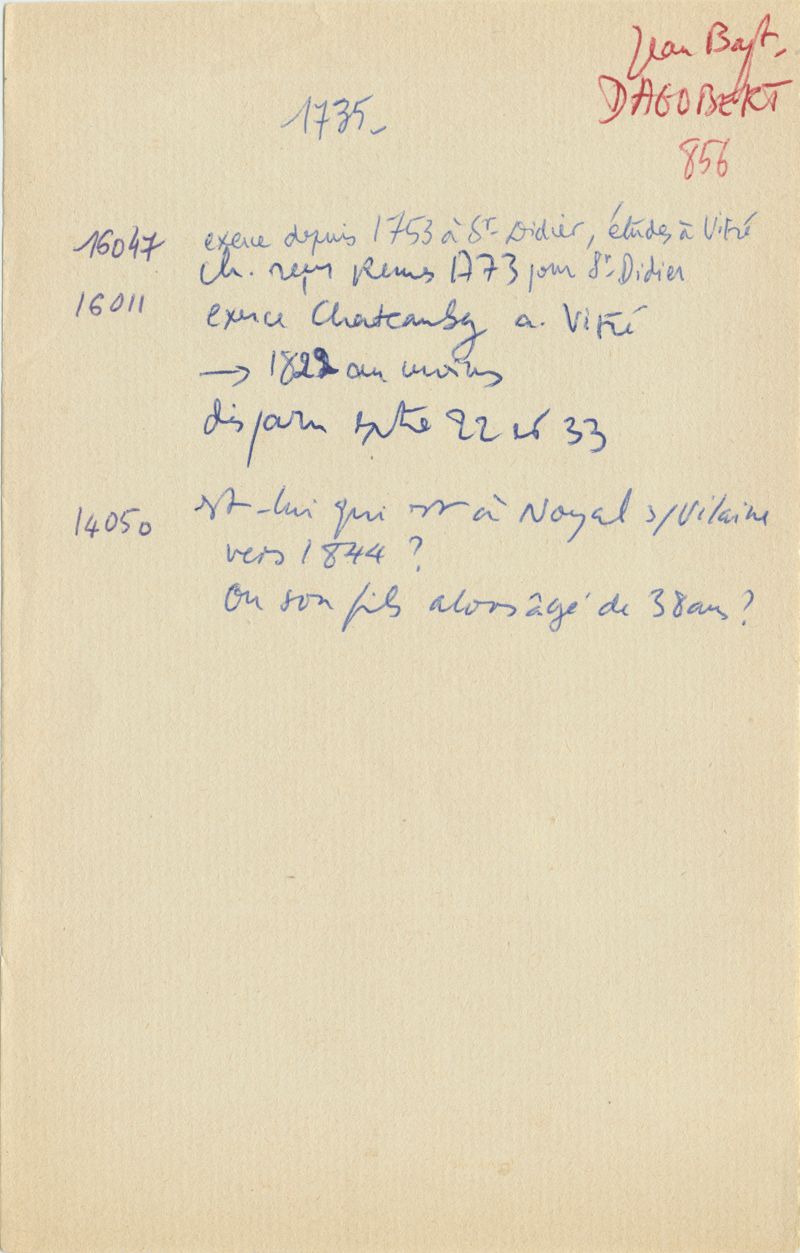 Jean Bapt.
DAGOBERT
856
1735_
16047 exerce depuis 1753 à St-Didier, études à Vitré
Ch. reçu Rennes 1773 pour St-Didier
16011 exerce Chateaubg a. Vitré
→ 1822 au moins
disparu entre 22 et 33
14050 est-lui qui est à Noyal s/Vilaine
vers 1844 ?
Ou son fils alors âgé de 38 ans ?